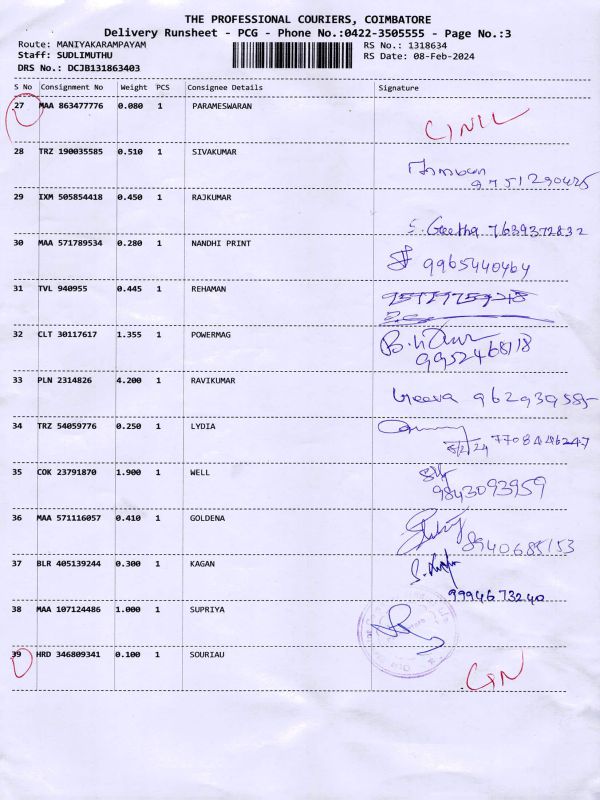 THE PROFESSIONAL COURIERS, COIMBATORE
Delivery Runsheet - PCG - Phone No.:0422-3505555 - Page No.:3
Route: MANIYAKARAMPAYAM RS No.: 1318634
Staff: SUDLIMUTHU RS Date: 08-Feb-2024
DRS No.: DCJB131863403
S No Consignment No Weight PCS Consignee Details Signature
27 MAA 863477776 0.080 1 PARAMESWARAN
28 TRZ 190035585 0.510 1 SIVAKUMAR
9751290425
29 IXM 505854418 0.450 1 RAJKUMAR
S. Geetha 7639372832
30 MAA 571789534 0.280 1 NANDHI PRINT
9965440464
31 TVL 940955 0.445 1 REHAMAN
32 CLT 30117617 1.355 1 POWERMAG
9952468118
33 PLN 2314826 4.200 1 RAVIKUMAR
34 TRZ 54059776 0.250 1 LYDIA
8/2/24 7708446247
35 COK 23791870 1.900 1 WELL
9843093959
36 MAA 571116057 0.410 1 GOLDENA
8940685153
37 BLR 405139244 0.300 1 KAGAN
9994673240
38 MAA 107124486 1.000 1 SUPRIYA
39 HRD 346809341 0.100 1 SOURIAU